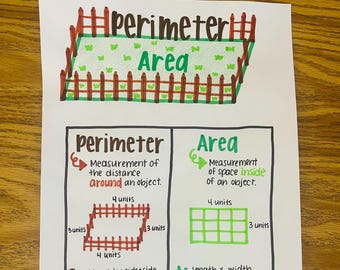 Perimeter
Area
Perimeter
Measurement of
the distance
around an object.
4 units
3 units
3 units
4 units
Area
Measurement
of space inside
of an object.
4 units
3 units
A= length x width